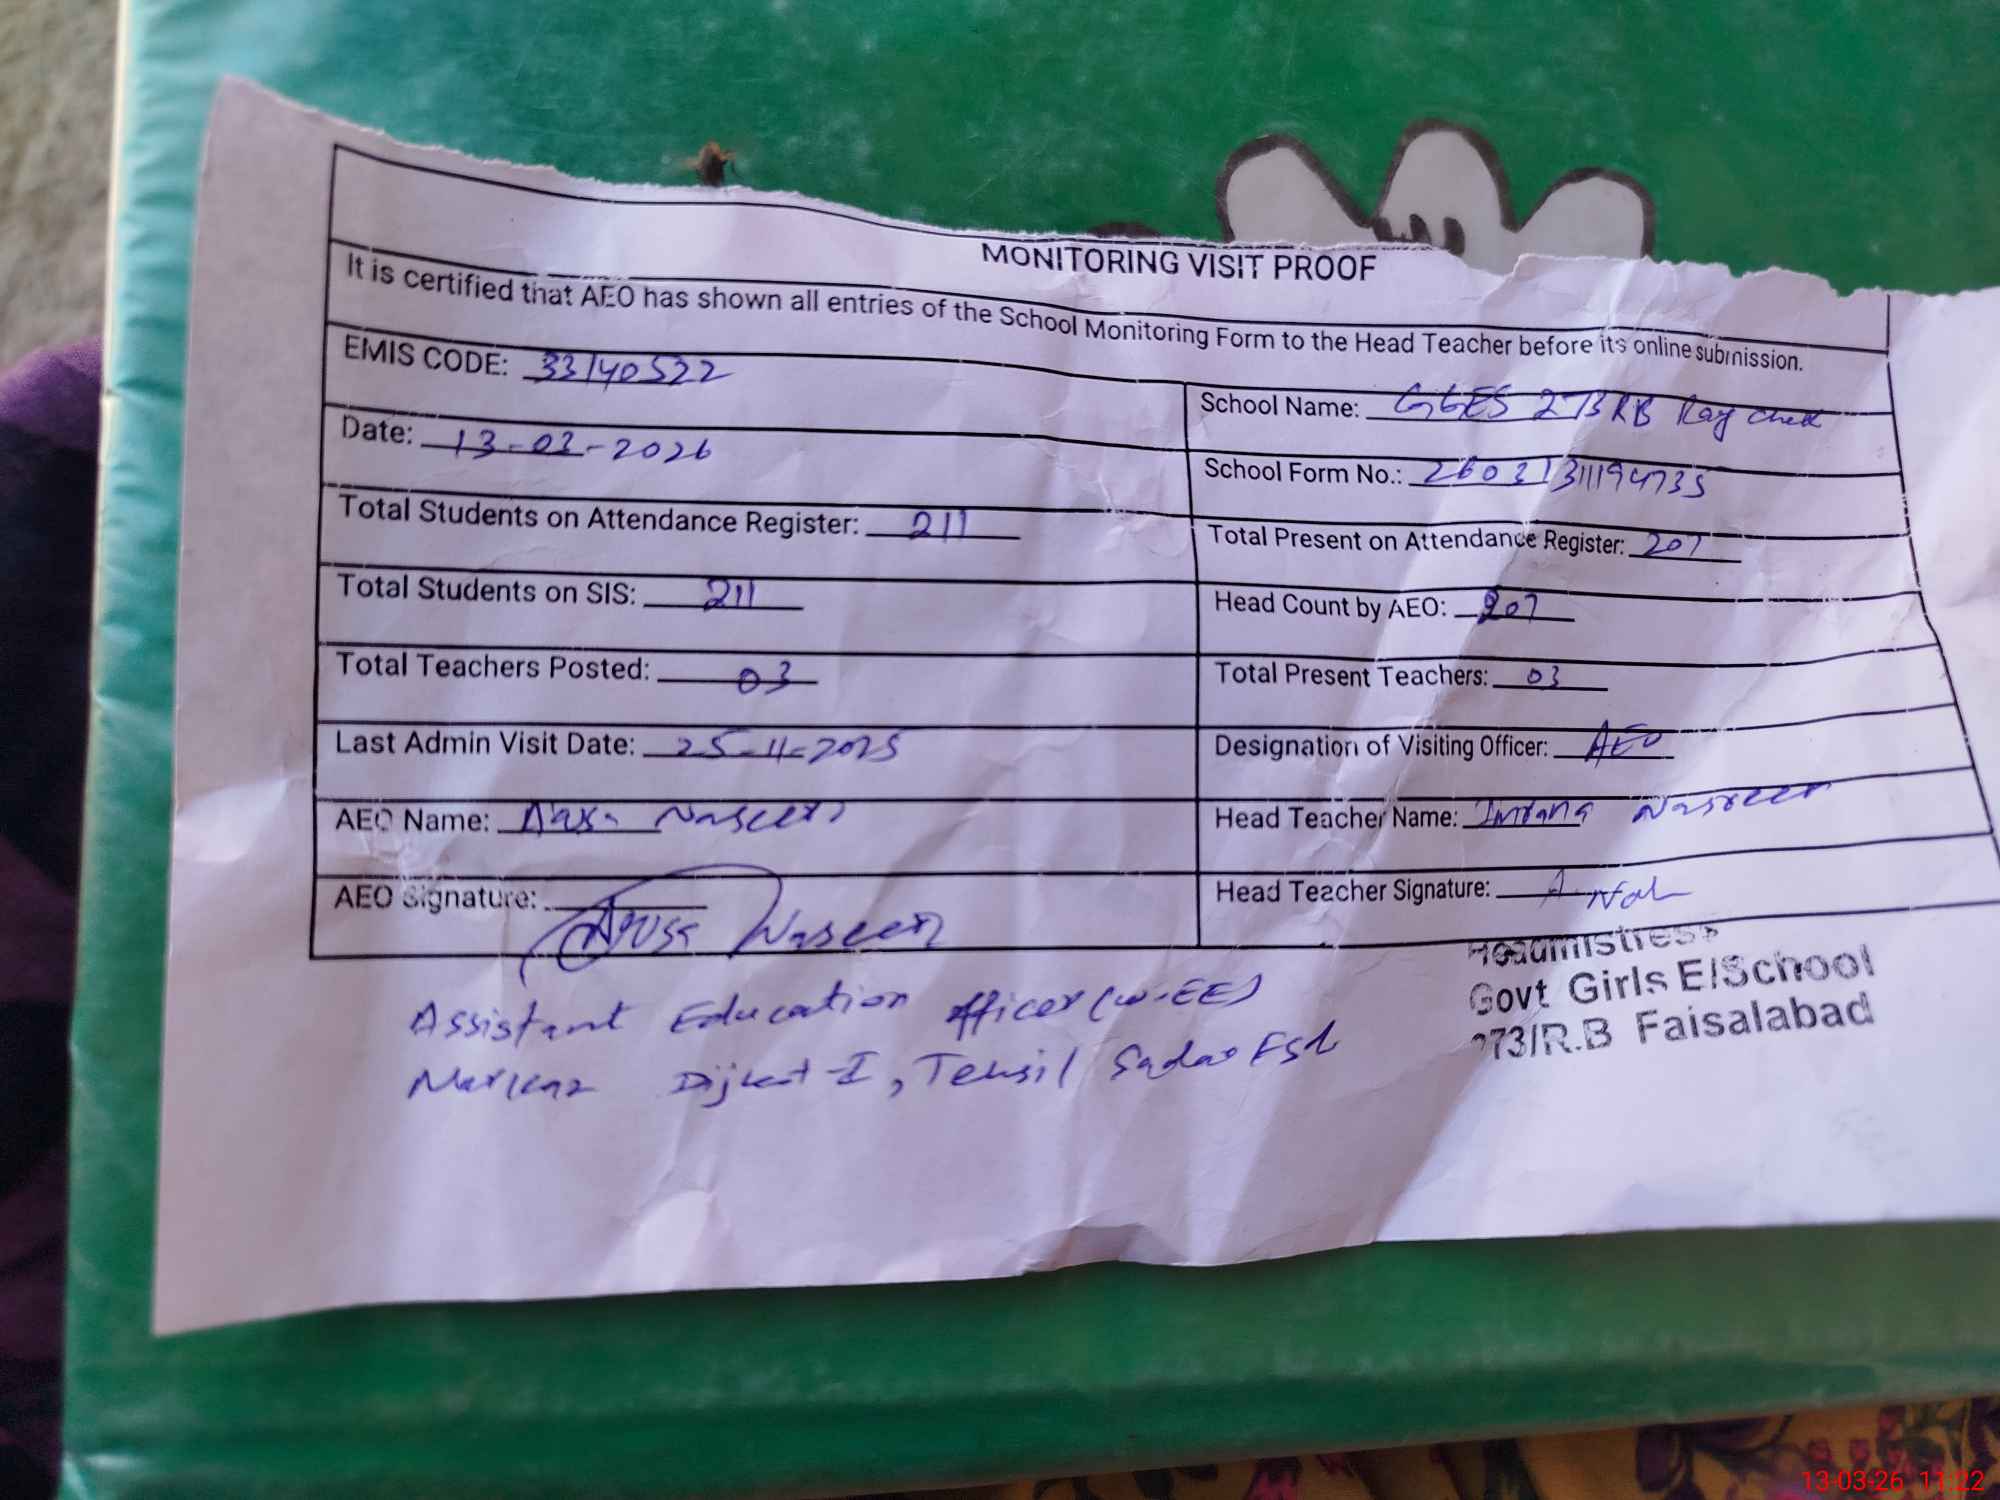 MONITORING VISIT PROOF
It is certified that AEO has shown all entries of the School Monitoring Form to the Head Teacher before its online submission.
EMIS CODE: 33140522
School Name: GGES 273 RB Ray chak
Date: 13-03-2026
School Form No.: 26031311194735
Total Students on Attendance Register: 211
Total Present on Attendance Register: 207
Total Students on SIS: 211
Head Count by AEO: 207
Total Teachers Posted: 03
Total Present Teachers: 03
Last Admin Visit Date: 25-11-2025
Designation of Visiting Officer: AEO
AEO Name: Naseem
Head Teacher Name: Imrana Nasreen
AEO Signature: Naseem
Head Teacher Signature:
Headmistress
Govt Girls E/School
273/R.B Faisalabad
Assistant Education Officer (W-EE)
Markaz Dijkot-I, Tehsil Sadar Fsd
13-03-26 11:22